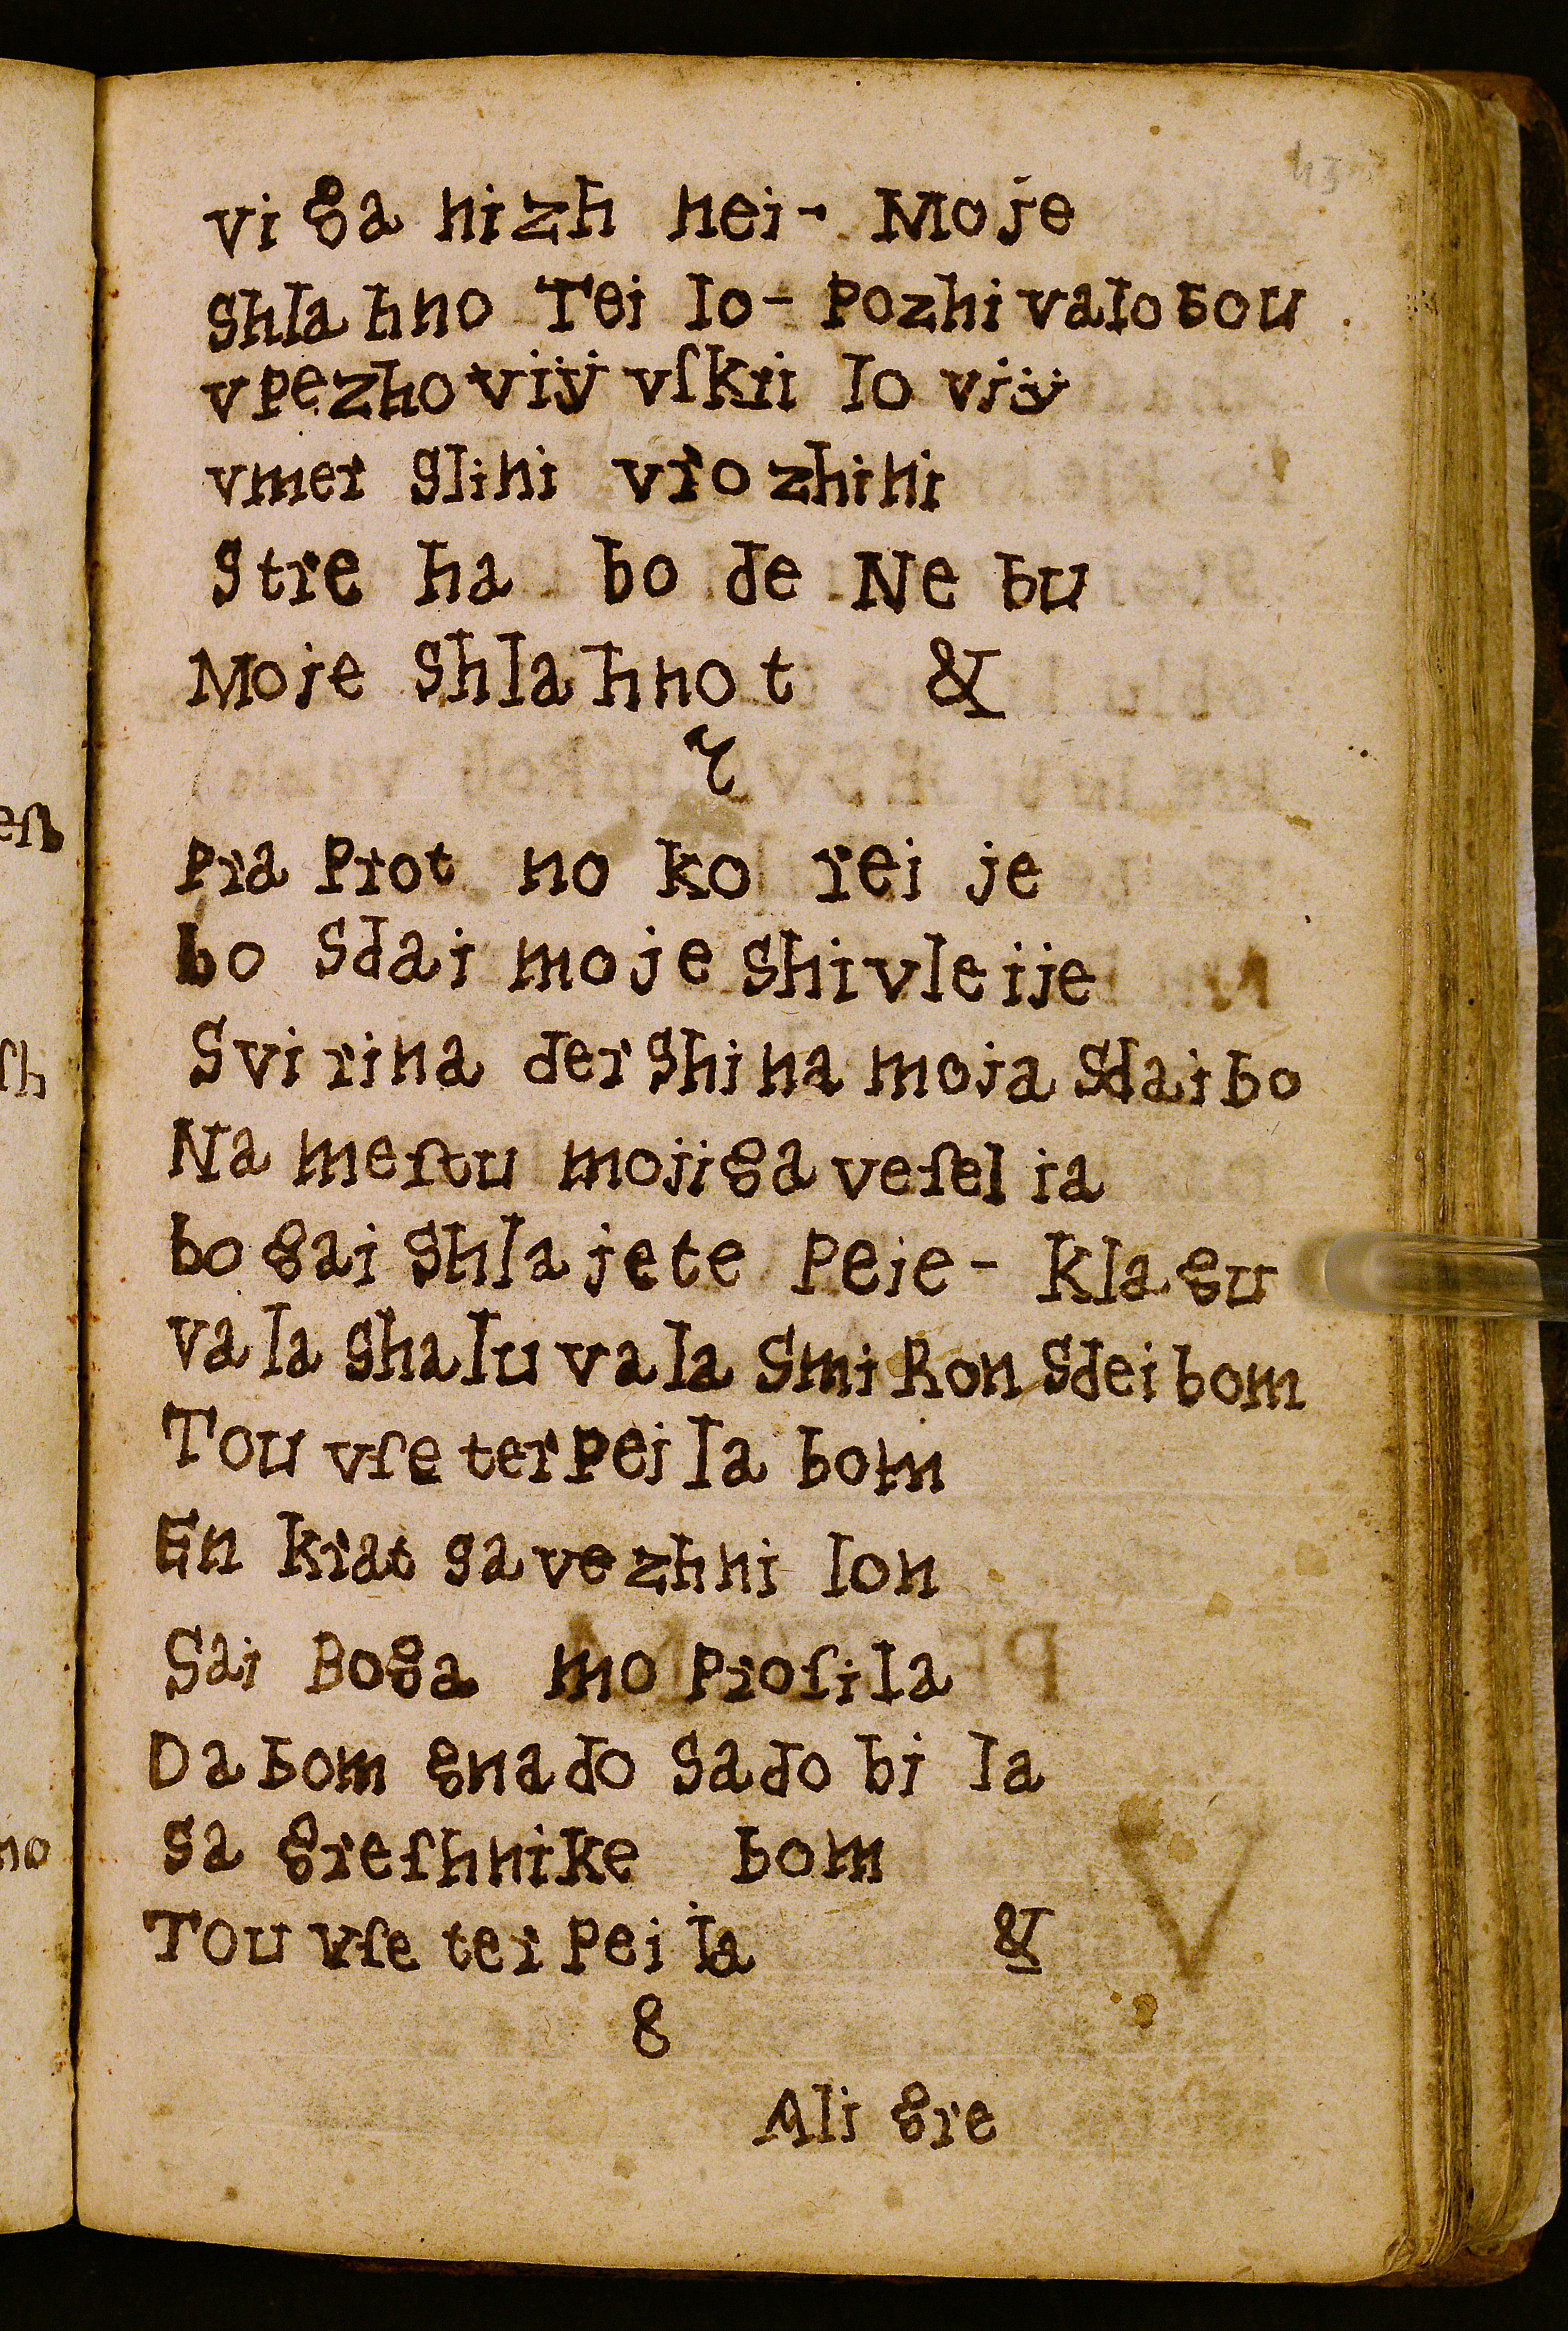 43
vi ga nizh nei - Moje
Shla hno Tei lo - Pozhi valobou
vpezho viÿ vſkii lo viÿ
vmer glihi vrozhihi
Stre ha bo de Ne bu
Moje Shlahno t &
7
Pra Prot no ko rei je
bo Sdai moje Shivleije
Svi rina der Shina moja Sdai bo
Na meſtu mojiga veſel ja
bo gai Shla jete Peje - Klagu
va la Shalu va la Smi Ron Sdei bom
Tou vſe terpei la bom
En krat savezhni lon
Sai Boga mo Proſila
Da bom gnado Sado bi la
Sa greſhnike bom
Tou vſe ter Pei la &
8
Ali gre
eſt
ſh
no